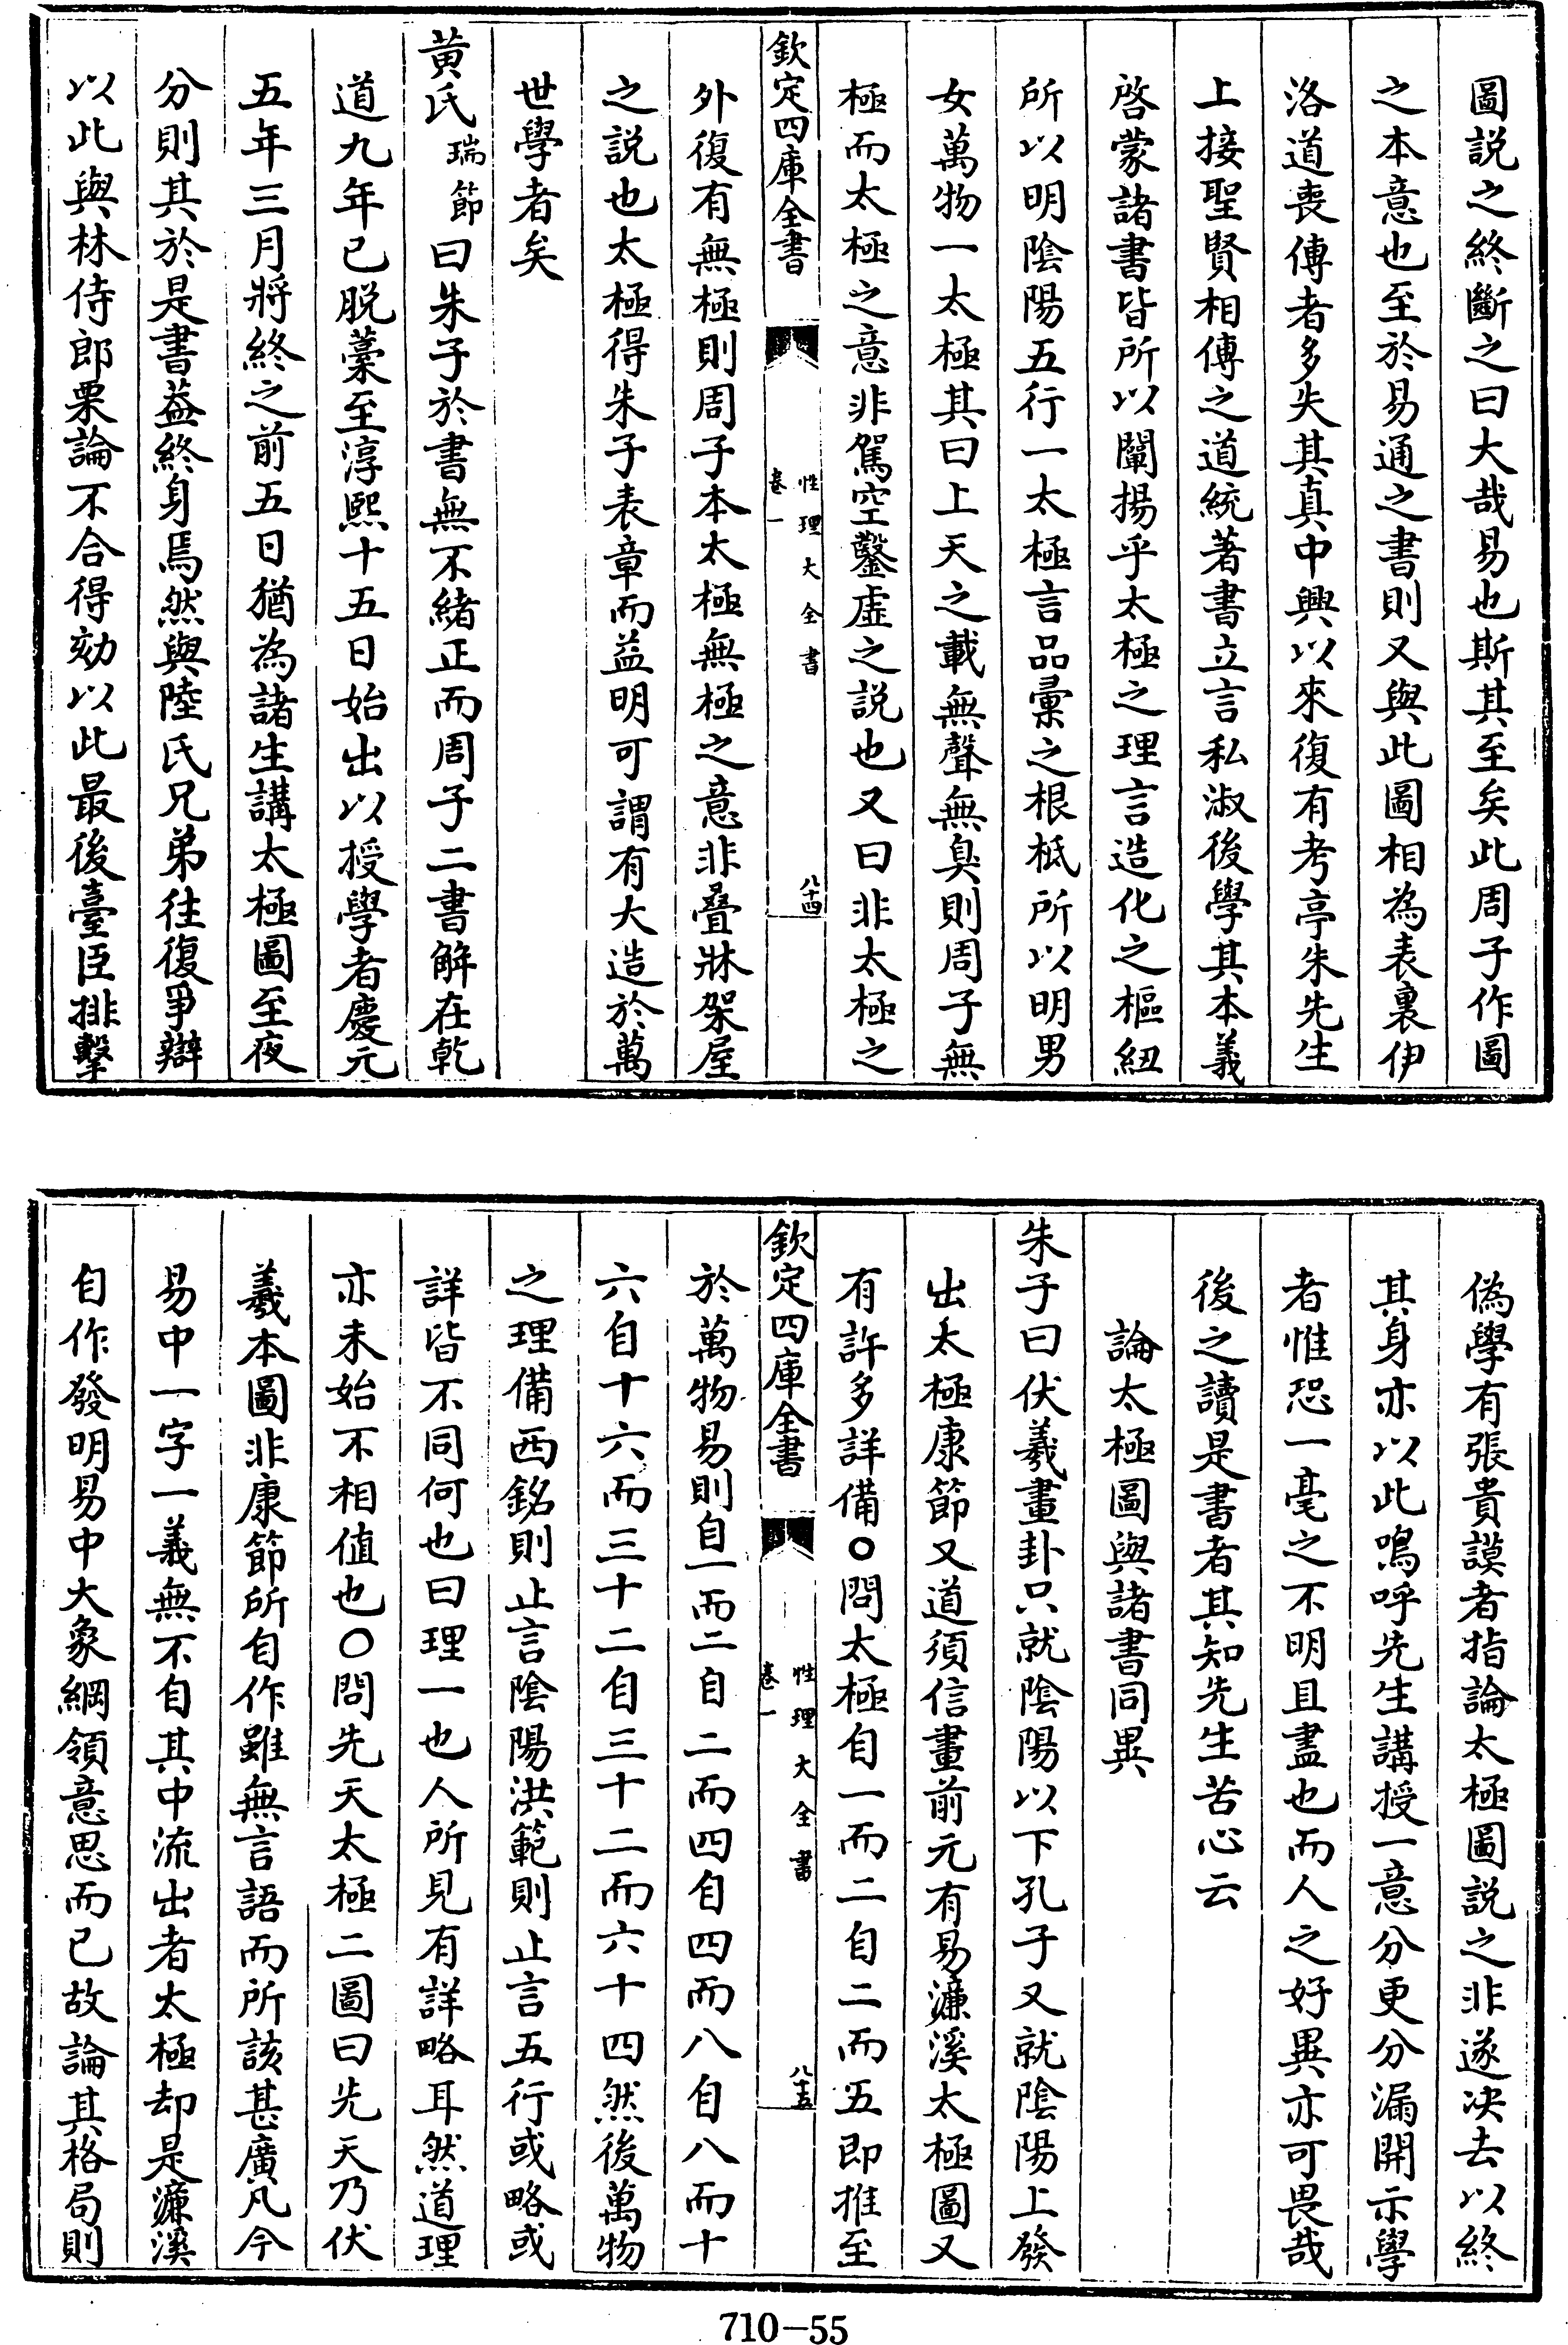 圖説之終斷之曰大哉易也斯其至矣此周子作圖
之本意也至於易通之書則又與此圖相為表裏伊
洛道喪傳者多失其真中興以來復有考亭朱先生
上接聖賢相傳之道統著書立言私淑後學其本義
啓蒙諸書皆所以闡揚乎太極之理言造化之樞紐
所以明陰陽五行一太極言品彙之根柢所以明男
女萬物一太極其曰上天之載無聲無臭則周子無
極而太極之意非駕空鑿虛之説也又曰非太極之
欽定四庫全書
性理大全書
卷一
八十四
外復有無極則周子本太極無極之意非疊牀架屋
之説也太極得朱子表章而益明可謂有大造於萬
世學者矣
黄氏瑞節曰朱子於書無不緒正而周子二書解在乾
道九年已脱藁至淳熙十五日始出以授學者慶元
五年三月將終之前五日猶為諸生講太極圖至夜
分則其於是書益終身焉然與陸氏兄弟往復爭辯
以此與林侍郎栗論不合得劾以此最後臺臣排擊
偽學有張貴謨者指論太極圖説之非遂决去以終
其身亦以此嗚呼先生講授一意分更分漏開示學
者惟恐一毫之不明且盡也而人之好異亦可畏哉
後之讀是書者其知先生苦心云
論太極圖與諸書同異
朱子曰伏羲畫卦只就陰陽以下孔子又就陰陽上發
出太極康節又道須信畫前元有易濂溪太極圖又
有許多詳備○問太極自一而二自二而五即推至
欽定四庫全書
性理大全書
卷一
八十五
於萬物易則自一而二自二而四自四而八自八而十
六自十六而三十二自三十二而六十四然後萬物
之理備西銘則止言陰陽洪範則止言五行或略或
詳皆不同何也曰理一也人所見有詳略耳然道理
亦未始不相值也○問先天太極二圖曰先天乃伏
羲本圖非康節所自作雖無言語而所該甚廣凡今
易中一字一義無不自其中流出者太極却是濂溪
自作發明易中大象綱領意思而已故論其格局則
710-55